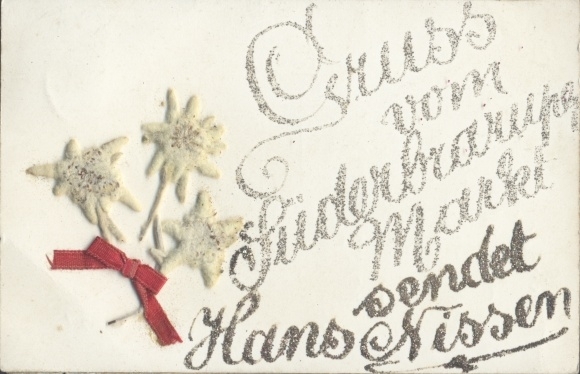 Gruss
vom
Süderbrarup
Markt
sendet
Hans Nissen